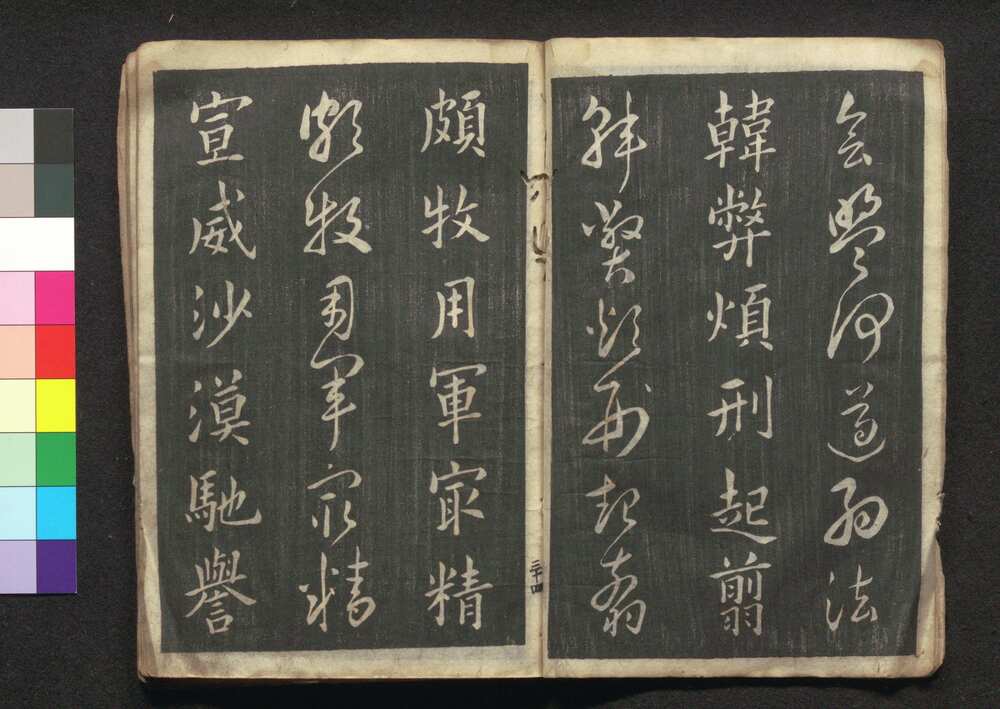 会盟何遵約法
韓弊煩刑起翦
韓弊煩刑起翦
三十四
頗牧用軍㝡精
頗牧用軍㝡精
宣威沙漠馳譽